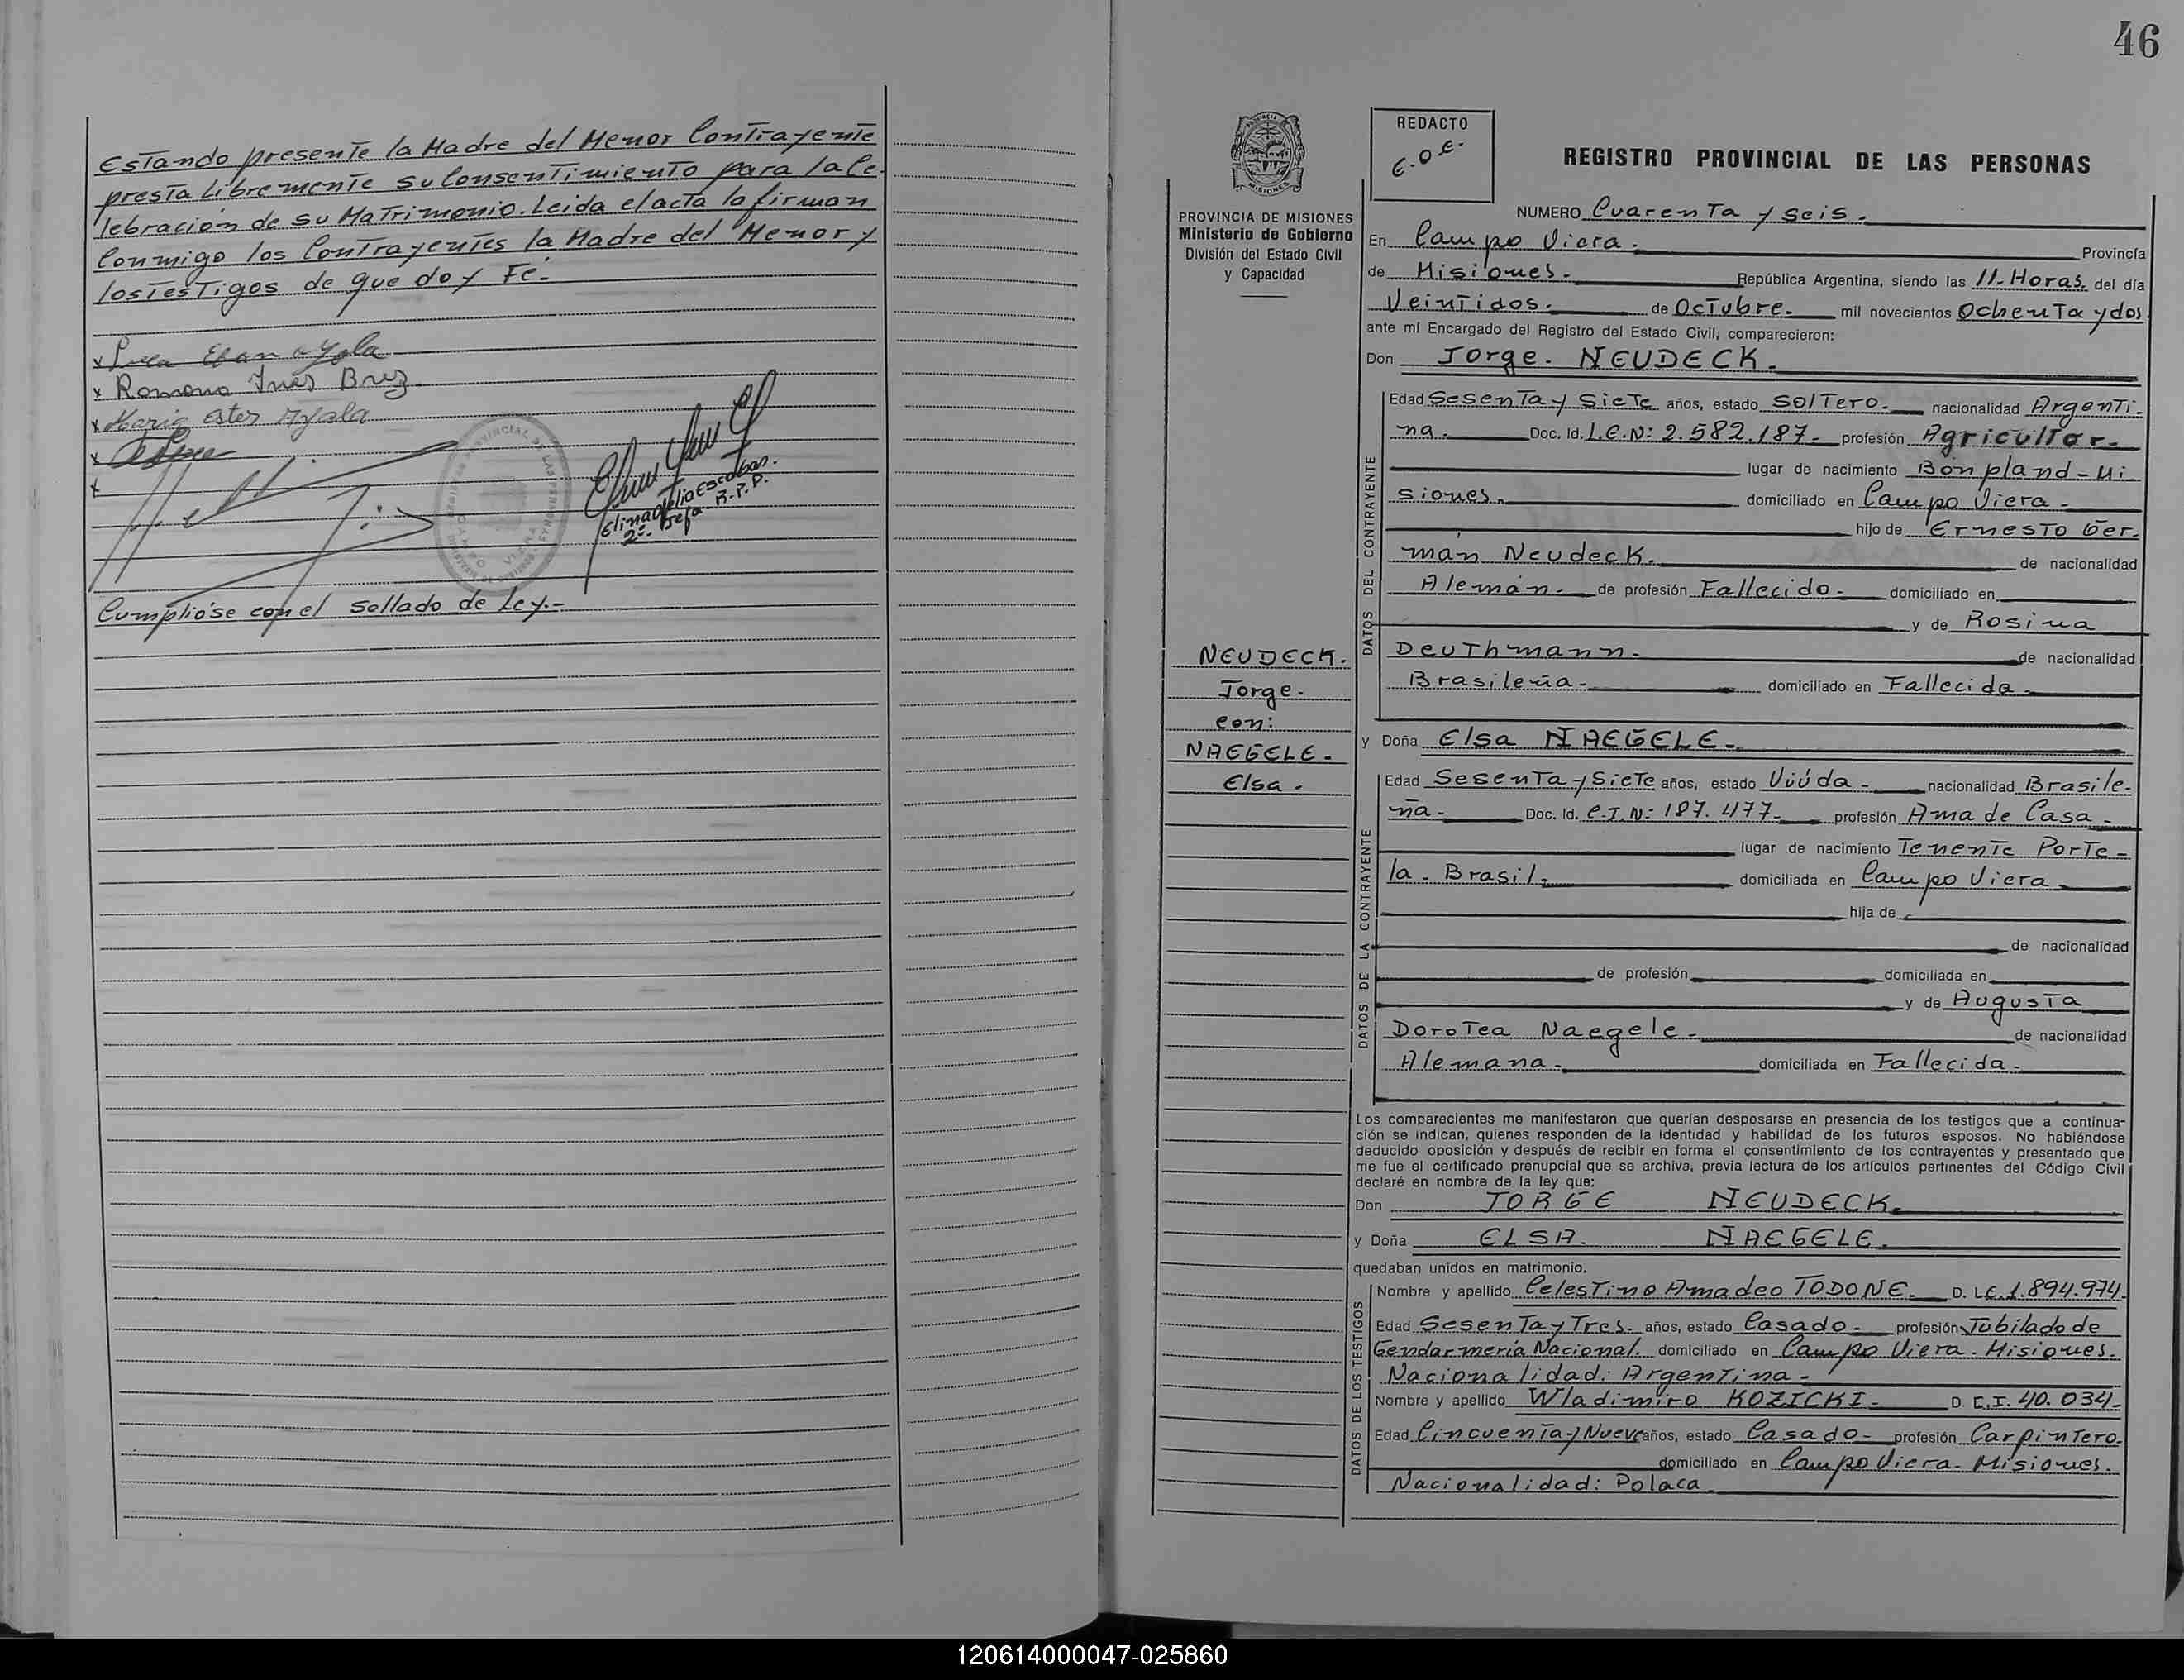 Estando presente la Madre del Menor Contrayente
presta Libremente su Consentimiento para la Ce
lebración de su Matrimonio. Leida el acta la firman
Conmigo los Contrayentes la Madre del Menor y
los Testigos de que doy Fé.-
x Ayala
x Romona Inés Brez
x Maria Ester Ayala
x
x
Elina Escobar.
2º. Jefa R.P.P.
Cumplióse con el sellado de Ley.-
46
REDACTO
E.O.E.
REGISTRO PROVINCIAL DE LAS PERSONAS
PROVINCIA DE MISIONES
Ministerio de Gobierno
División del Estado Civil
y Capacidad
NUMERO Cuarenta y seis.
En Campo Viera. Provincia
de Misiones. República Argentina, siendo las 11-Horas. del día
Veintidos. de Octubre. mil novecientos Ochenta y dos
ante mí Encargado del Registro del Estado Civil, comparecieron:
Don Jorge. NEUDECK.
DATOS DEL CONTRAYENTE
Edad Sesenta y Siete años, estado Soltero. nacionalidad Argenti-
na. Doc. Id. L.E.N: 2.582.187- profesión Agricultor-
lugar de nacimiento Bonpland-Mi
siones. domiciliado en Campo Viera-
hijo de Ernesto Ger.
mán Neudeck. de nacionalidad
Alemán. de profesión Fallecido- domiciliado en
y de Rosina
Deuthmann. de nacionalidad
Brasileña- domiciliado en Fallecida-
NEUDECK.
Jorge.
con:
NAEGELE-
Elsa.
y Doña Elsa NAEGELE-
DATOS DE LA CONTRAYENTE
Edad Sesenta y Siete años, estado Viúda- nacionalidad Brasile-
ña- Doc. Id. C.I.N: 187.477- profesión Ama de Casa-
lugar de nacimiento Tenente Porte-
la- Brasil- domiciliada en Campo Viera-
hija de
de nacionalidad
de profesión domiciliada en
y de Augusta
Dorotea Naegele- de nacionalidad
Alemana- domiciliada en Fallecida-
Los comparecientes me manifestaron que querían desposarse en presencia de los testigos que a continua-
ción se indican, quienes responden de la identidad y habilidad de los futuros esposos. No habiéndose
deducido oposición y después de recibir en forma el consentimiento de los contrayentes y presentado que
me fue el certificado prenupcial que se archiva, previa lectura de los artículos pertinentes del Código Civil
declaré en nombre de la ley que:
Don JORGE NEUDECK.
y Doña ELSA. NAEGELE.
quedaban unidos en matrimonio.
DATOS DE LOS TESTIGOS
Nombre y apellido Celestino Amadeo TODONE- D. L.E.1.894.974.
Edad Sesenta y Tres- años, estado Casado- profesión Jubilado de
Gendarmería Nacional. domiciliado en Campo Viera-Misiones.
Nacionalidad: Argentina-
Nombre y apellido Wladimiro KOZICKI- D. C.I. 40.034-
Edad Cincuenta y Nueve años, estado Casado- profesión Carpintero-
domiciliado en Campo Viera-Misiones.
Nacionalidad: Polaca
120614000047-025860